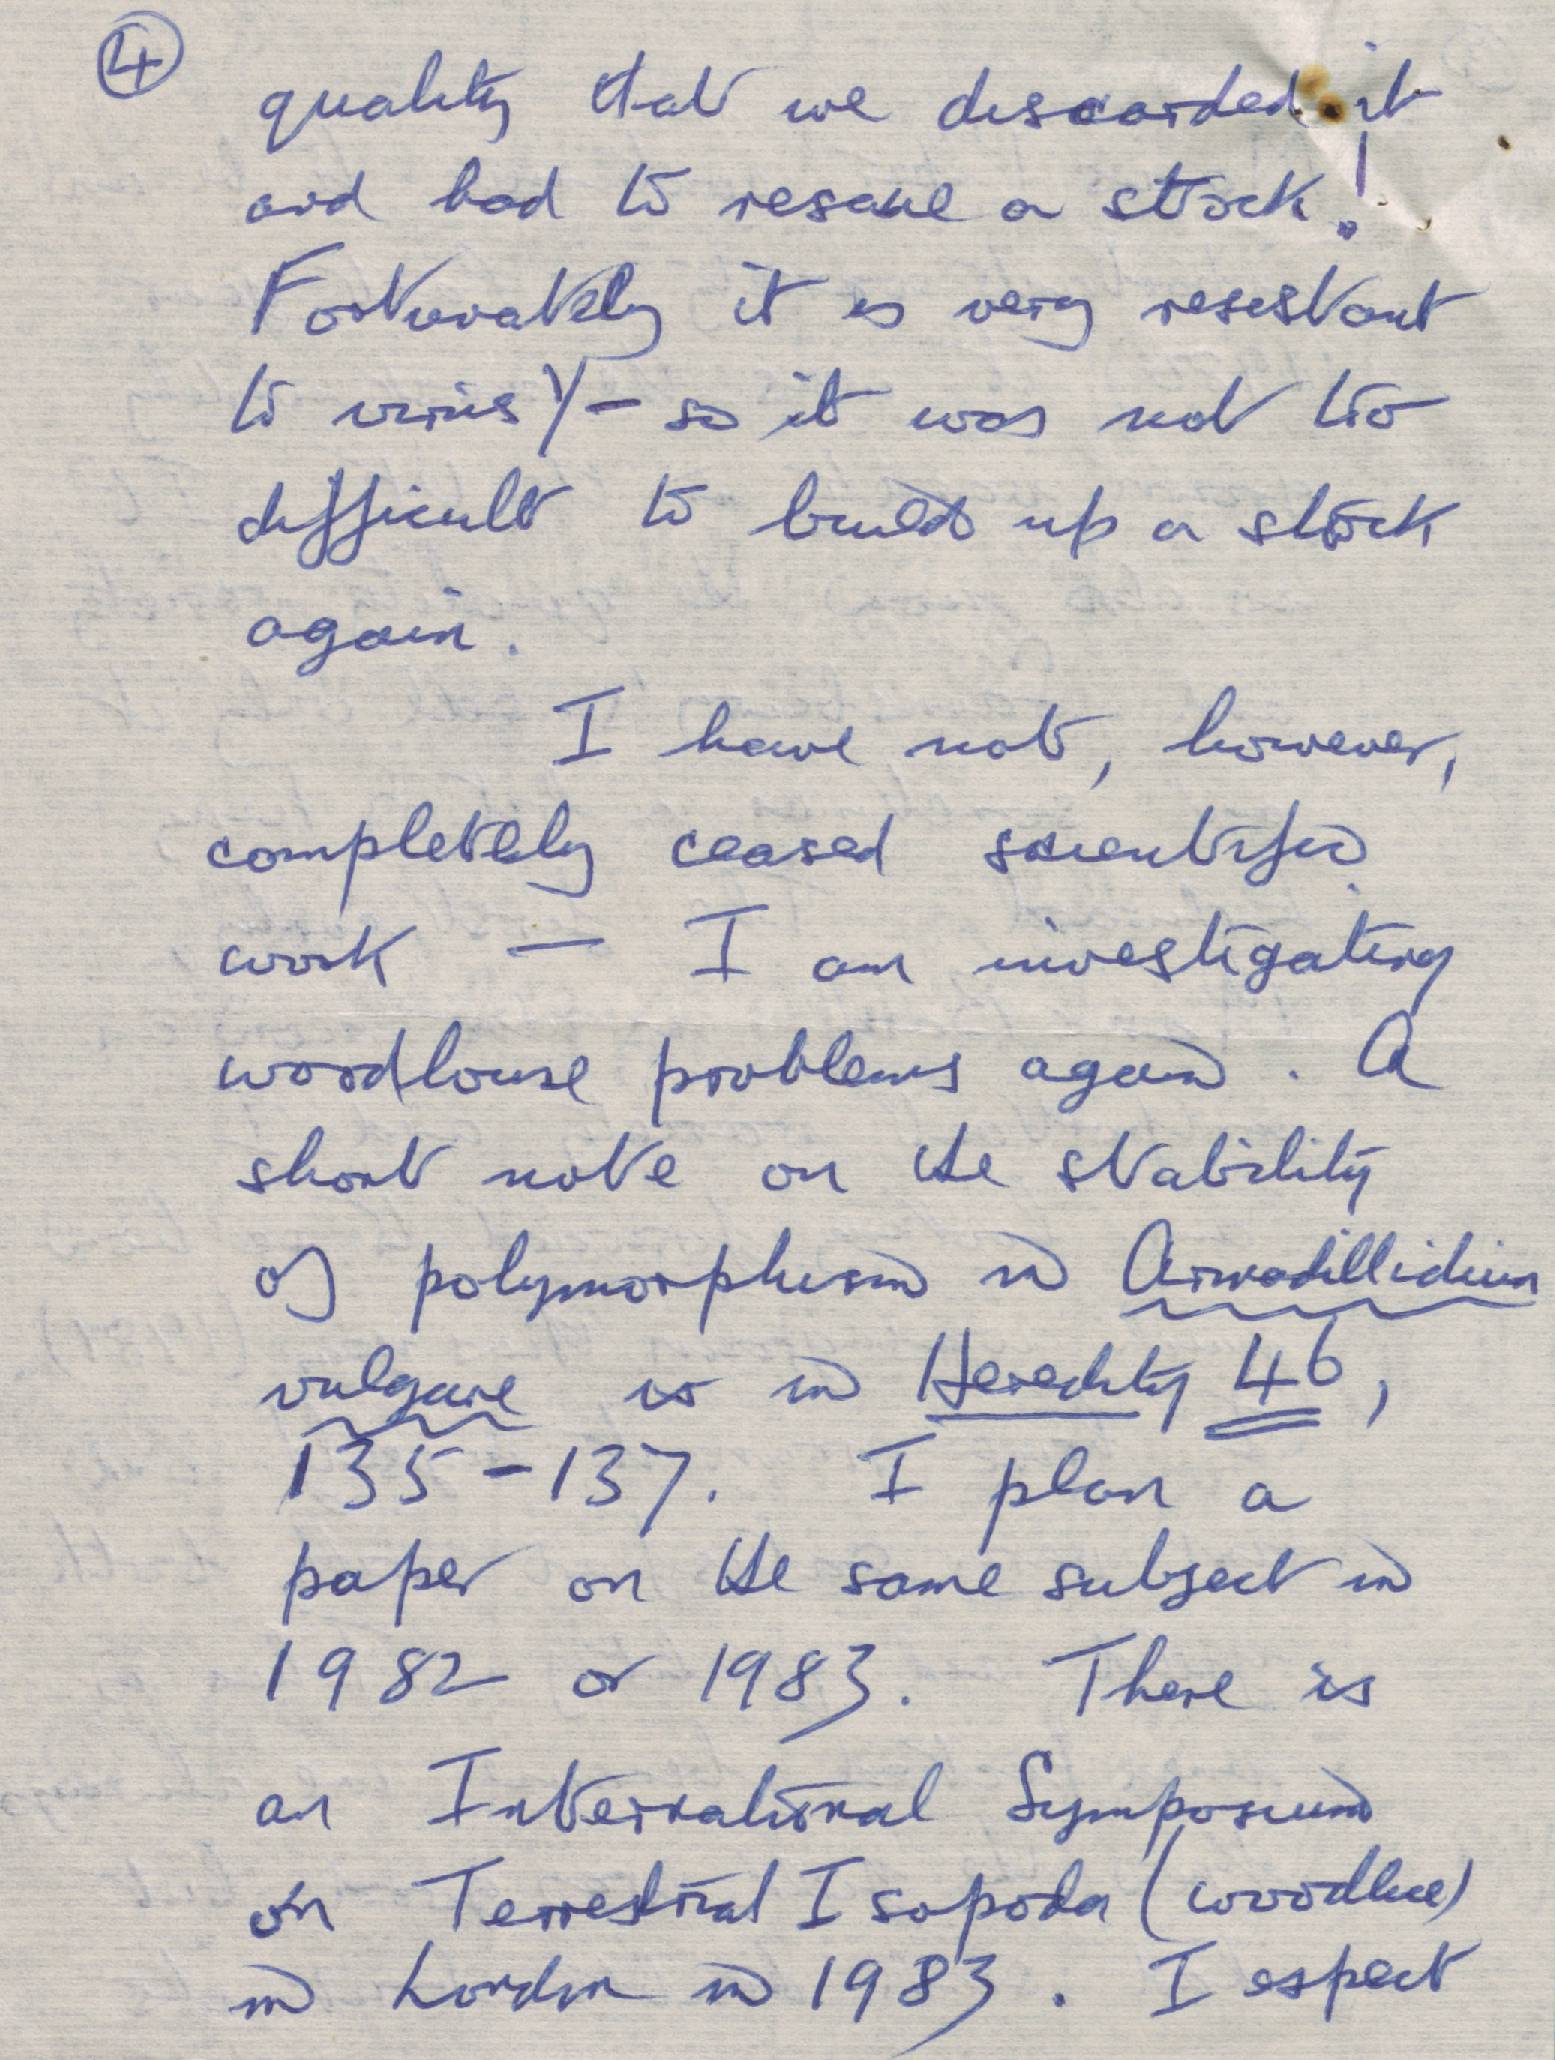 4
quality that we discarded it
and had to rescue a stock!
Fortunately it is very resistant
to virus Y - so it was not too
difficult to build up a stock
again.
I have not, however,
completely ceased scientific
work — I am investigating
woodlouse problems again. A
short note on the stability
of polymorphism in Armadillidium
vulgare is in Heredity 46,
135-137. I plan a
paper on the same subject in
1982 or 1983. There is
an International Symposium
on Terrestrial Isopoda (woodlice)
in London in 1983. I expect